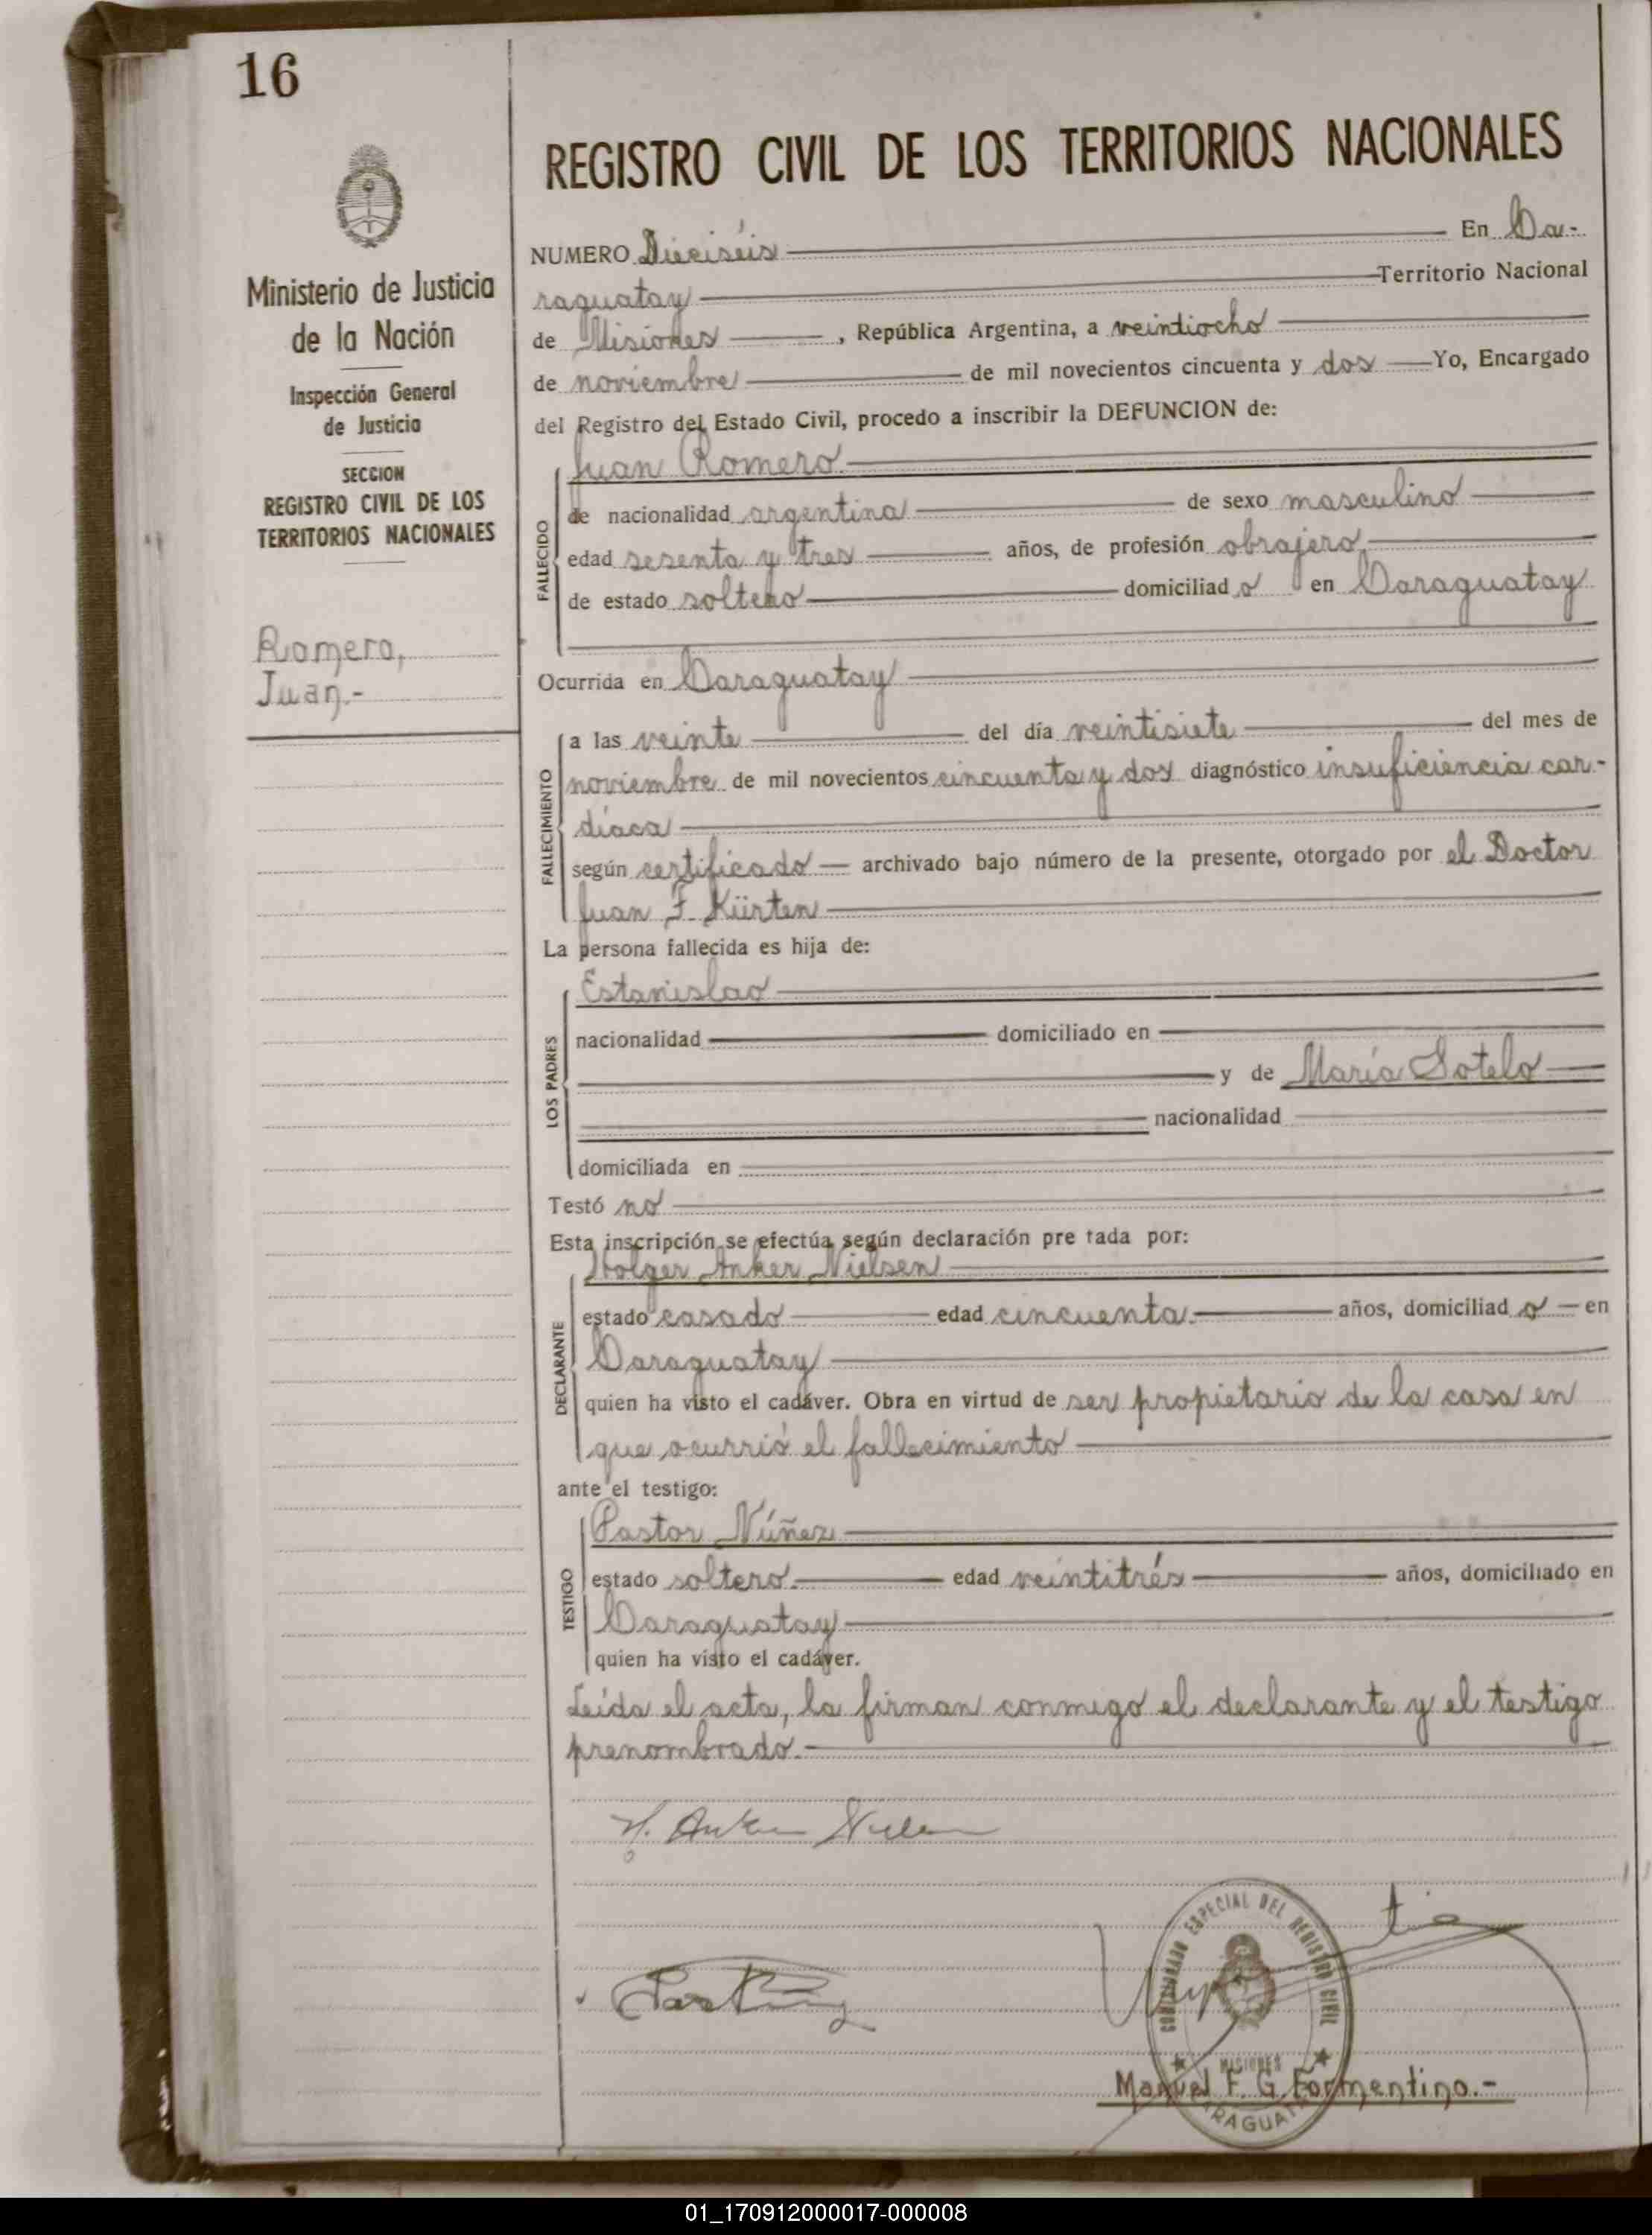 16
REGISTRO CIVIL DE LOS TERRITORIOS NACIONALES
Ministerio de Justicia
de la Nación
Inspección General
de Justicia
SECCION
REGISTRO CIVIL DE LOS
TERRITORIOS NACIONALES
Romero,
Juan.-
NUMERO Dieciséis En Ca-
raguatay Territorio Nacional
de Misiones, República Argentina, a veintiocho
de noviembre de mil novecientos cincuenta y dos Yo, Encargado
del Registro del Estado Civil, procedo a inscribir la DEFUNCION de:
FALLECIDO
Juan Romero
de nacionalidad argentina de sexo masculino
edad sesenta y tres años, de profesión obrajero
de estado soltero domiciliado en Caraguatay
Ocurrida en Caraguatay
FALLECIMIENTO
a las veinte del día veintisiete del mes de
noviembre de mil novecientos cincuenta y dos diagnóstico insuficiencia car-
díaca
según certificado archivado bajo número de la presente, otorgado por el Doctor
Juan F. Kürten
La persona fallecida es hija de:
LOS PADRES
Estanislao
nacionalidad domiciliado en
y de María Sotelo
nacionalidad
domiciliada en
Testó no
Esta inscripción se efectúa según declaración pre tada por:
DECLARANTE
Holger Anker Nielsen
estado casado edad cincuenta años, domiciliado en
Caraguatay
quien ha visto el cadáver. Obra en virtud de ser propietario de la casa en
que ocurrió el fallecimiento
ante el testigo:
TESTIGO
Pastor Núñez
estado soltero edad veintitrés años, domiciliado en
Caraguatay
quien ha visto el cadáver.
Leída el acta, la firman conmigo el declarante y el testigo
prenombrado.-
H. Anker Nielsen
ESPECIAL DEL REGISTRO CIVIL
MISIONES
Manuel F. G. Formentino.-
01_170912000017-000008